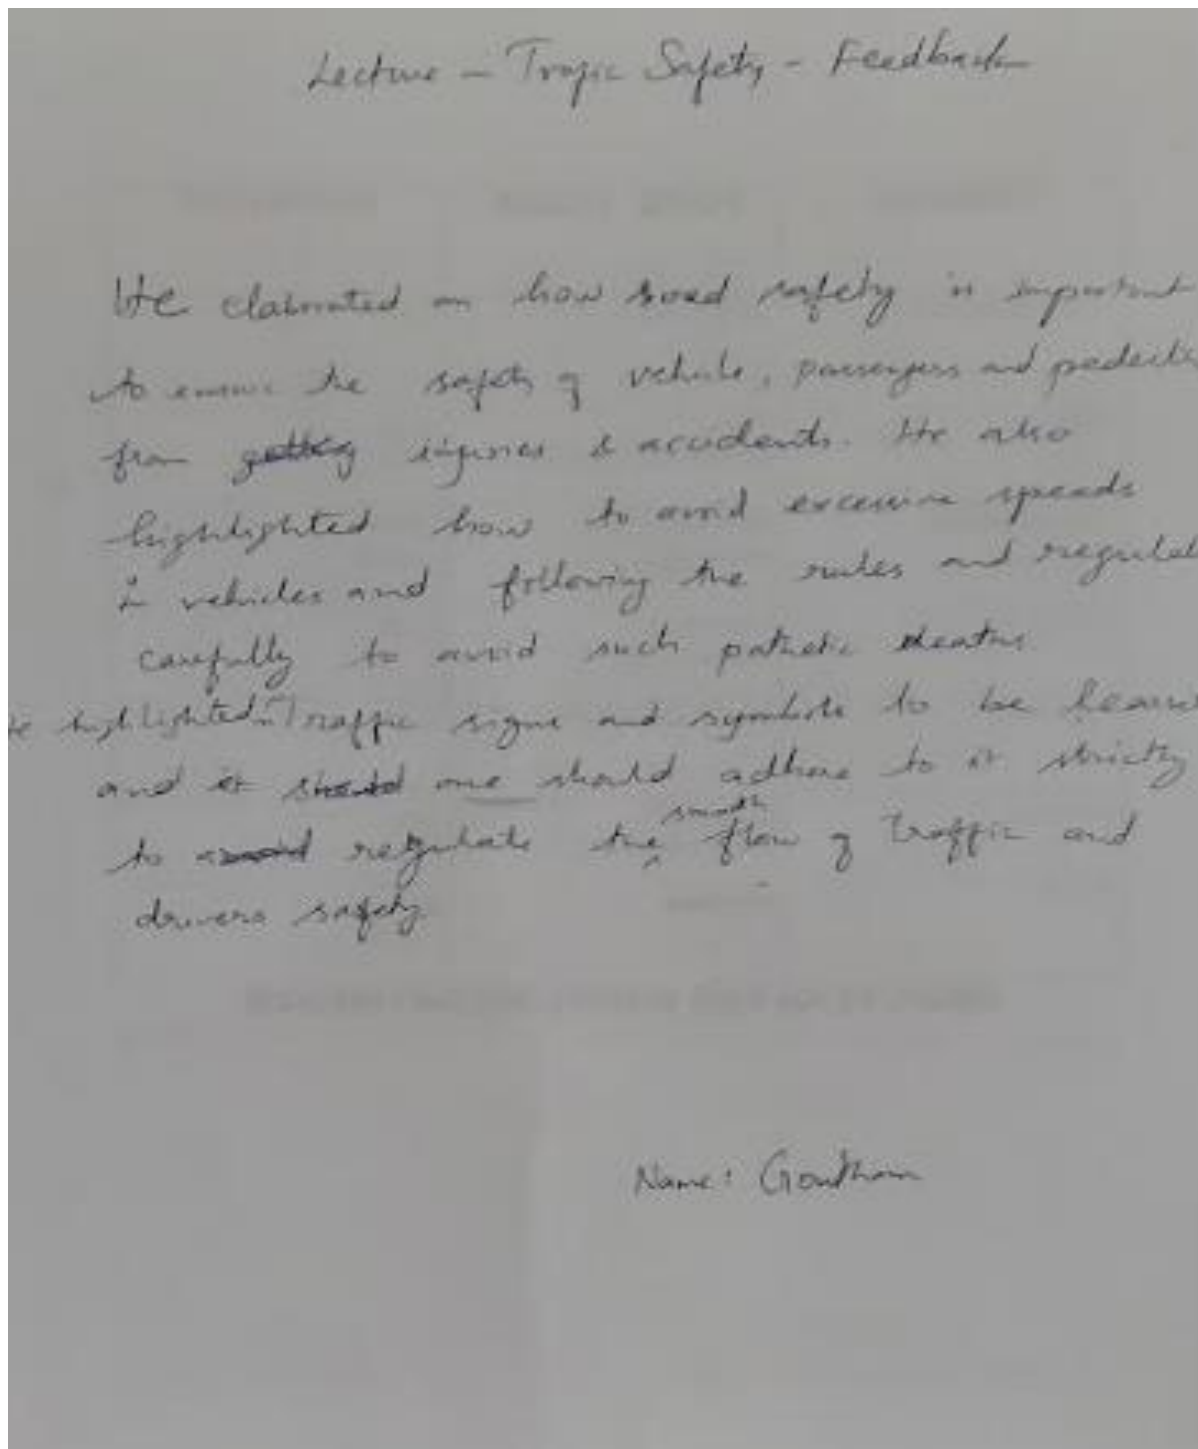 Lecture - Trafic Safety - Feedback
He elaborated on how road safety is important
to ensure the safety of vehicle, passengers and pedestri
from getting injuries & accidents. He also
highlighted how to avoid excessive speeds
in vehicles and following the rules and regulat
carefully to avoid such pathetic deaths.
He highlighted Traffic signs and symbols to be learn
and it should one should adhere to it strictly
to avoid regulate the smooth flow of traffic and
drivers safety.
Name: Goutham